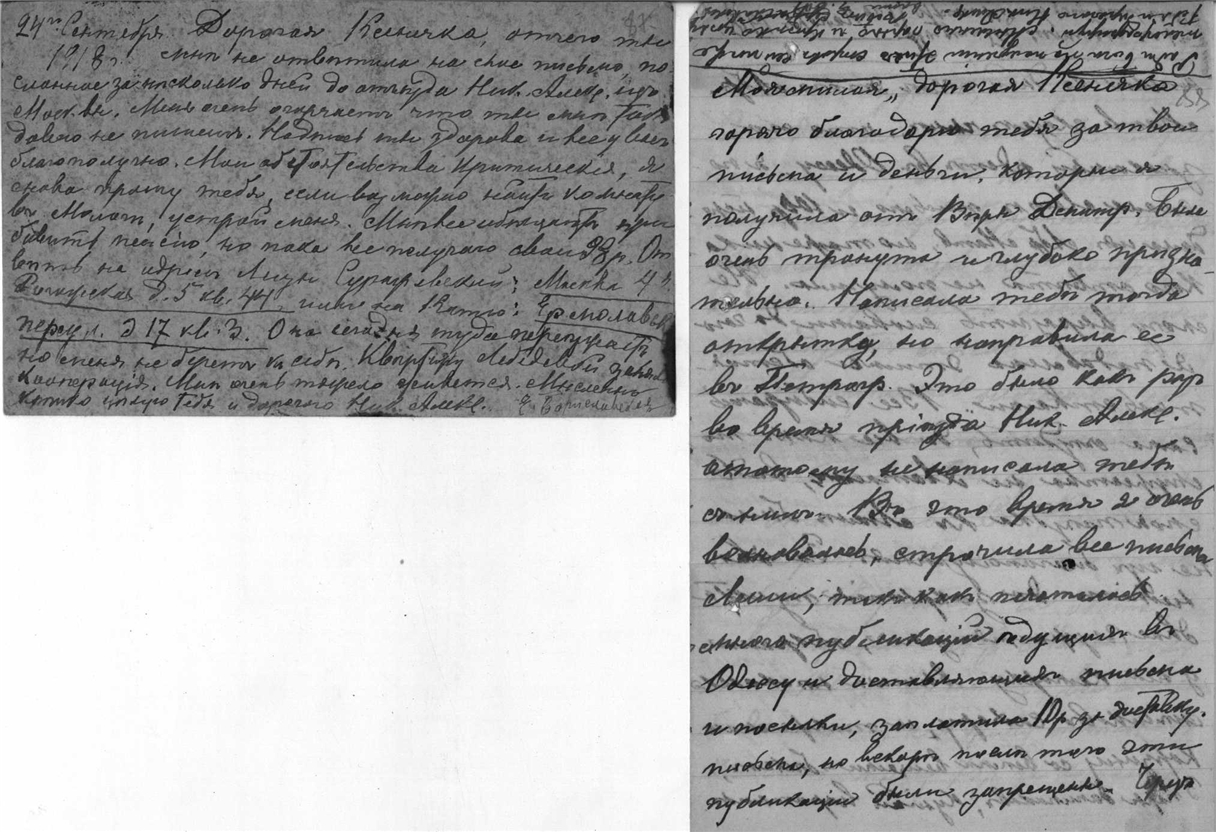 24го Сентября Дорогая Ксенячка, отчего ты
1918 г. мнѣ не отвѣтила на мое письмо, по-
сланное за нѣсколько дней до отъѣзда Ник. Алекс. изъ
Москвы. Меня очень огорчаетъ что ты мнѣ такъ
давно не пишешь. Надѣюсь ты здорова и все у васъ
благополучно. Мои обстоятельства критическія, я
снова прошу тебя, если возможно найти комнату
въ устрой меня. Мнѣ все обѣщаютъ при
бавить пенсію, но пока все получаю свои 98 р. От
вѣть на адресъ Лизы Москва 4я
Рогожская д. 5 кв. 44 или на Катю: Ермолаевск
переул. д 17 кв. 3. Она сегодня туда переѣзжаетъ
но меня не беретъ къ себѣ. Квартиру Лебедевой заняла
Кооперація. Мнѣ очень тяжело живется. Мысленно
цѣлую тебя и дорогого Ник. Алекс.
Моя милая, дорогая Ксенячка
горячо благодарю тебя за твои
письма и деньги, которыя я
получила отъ Вѣры Дмитр. Была
очень тронута и глубоко призна-
тельна. Написала тебѣ тогда
открытку, но направила ее
въ Петрогр. Это было какъ разъ
во время пріѣзда Ник. Алекс.
оттого ему не написала тебѣ
съ нимъ. Въ это время я очень
волновалась, строчила все письма
, такъ какъ печаталось
много публикацій ѣдущихъ въ
Одессу и доставляющихъ письма
и посылки, заплатила 10 р за доставку
письма, но вскорѣ послѣ того эти
публикаціи были запрещены. Черезъ